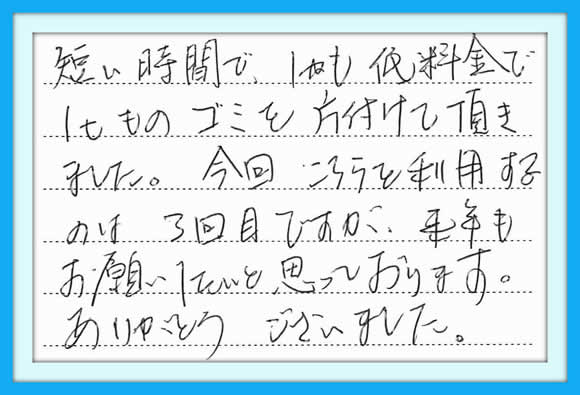 短い時間で、しかも 低料金で
1tもの ゴミを 片付けて頂き
ました。 今回 こちらを利用する
のは 3回目ですが、来年も
お願いしたいと思っております。
ありがとう ございました。